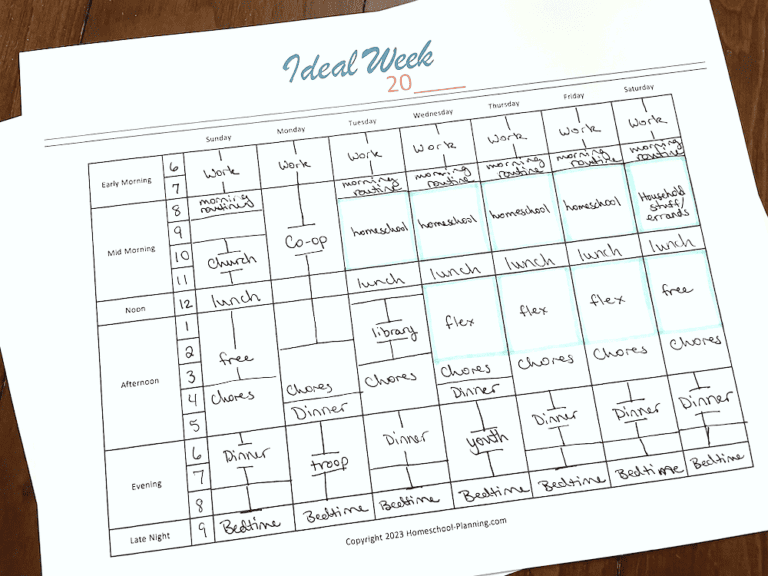 Ideal Week
20____
Sunday Monday Tuesday Wednesday Thursday Friday Saturday
Early Morning
6
7
work work work work work work work
morning routine morning routine morning routine morning routine morning routine
Mid Morning
8
9
10
11
morning routines
Church
Co-op
homeschool homeschool homeschool homeschool
Household
stuff/
errands
Noon
12
lunch lunch lunch lunch lunch lunch
Afternoon
1
2
3
4
5
free
library
flex flex flex free
chores chores chores chores chores chores chores
Dinner Dinner
Evening
6
7
8
Dinner troop Dinner youth Dinner Dinner Dinner
Late Night
9
Bedtime Bedtime Bedtime Bedtime Bedtime Bedtime Bedtime
Copyright 2023 Homeschool-Planning.com